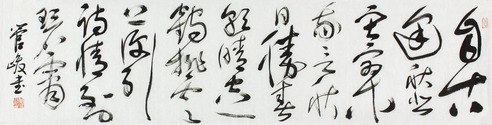 自古
逢秋悲
寂寥
我言秋
日胜春
朝晴空一
鹤排云
上便引
诗情到
碧霄
管峻书